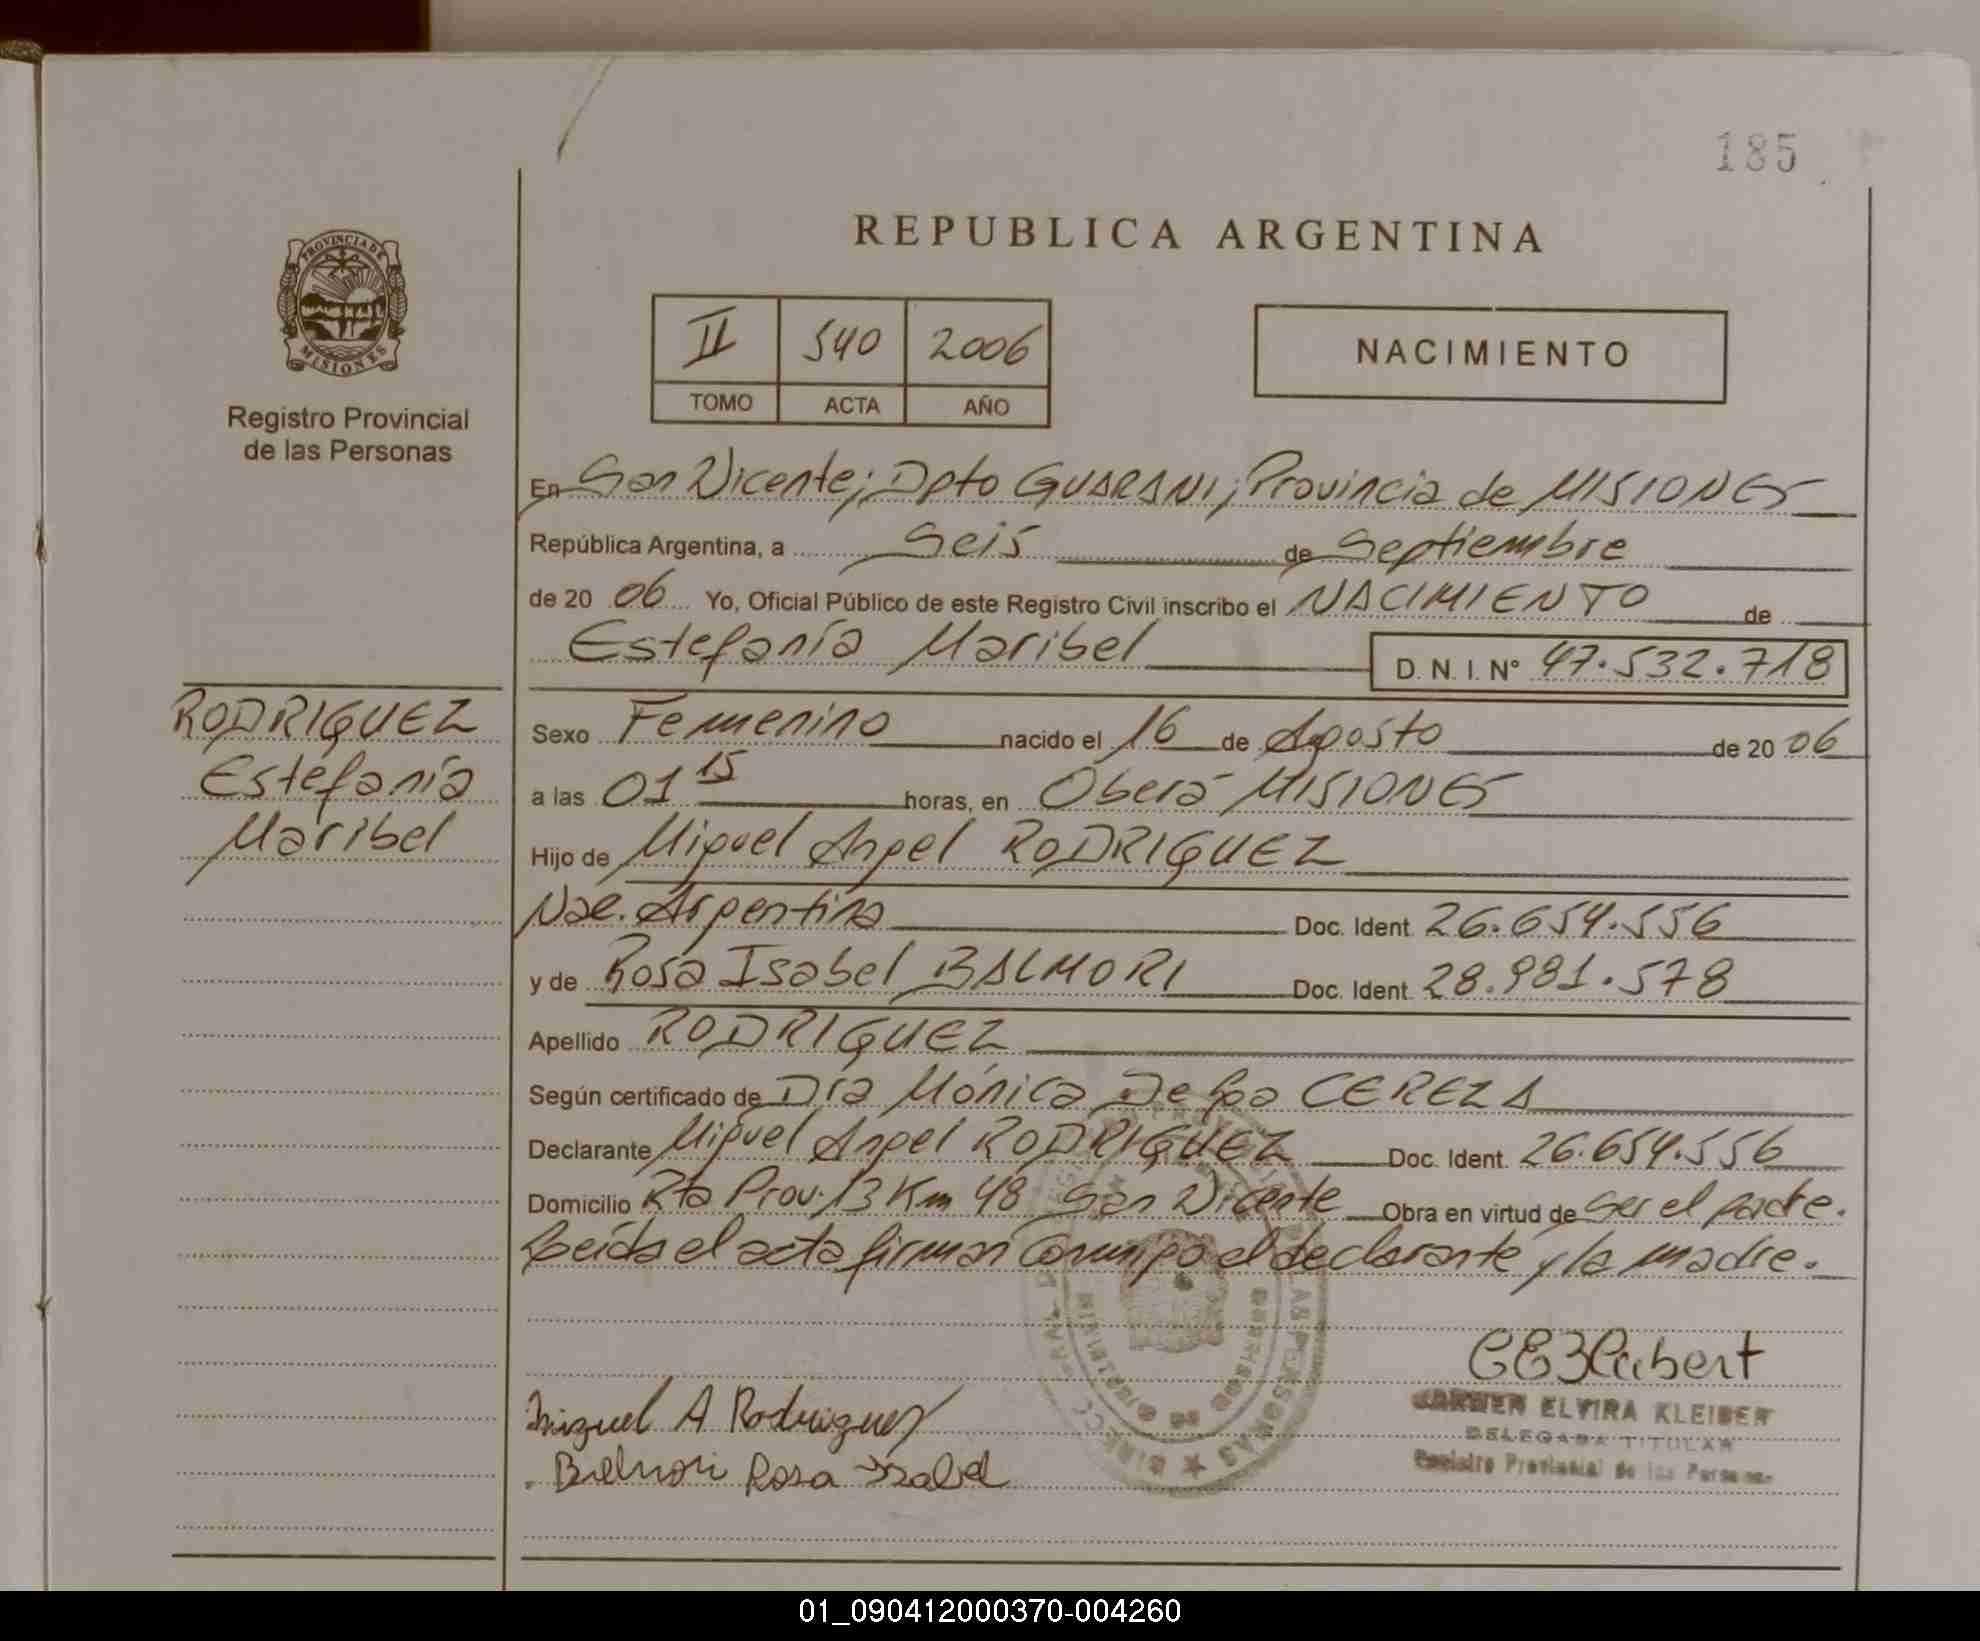 185
REPUBLICA ARGENTINA
PROVINCIA DE
MISIONES
Registro Provincial
de las Personas
II 540 2006
TOMO ACTA AÑO
NACIMIENTO
En San Vicente; Dpto GUARANI; Provincia de MISIONES
República Argentina, a Seis de Septiembre
de 20 06 Yo, Oficial Público de este Registro Civil inscribo el NACIMIENTO de
Estefanía Maribel D. N. I. Nº 47.532.718
RODRIGUEZ
Estefanía
Maribel
Sexo Femenino nacido el 16 de Agosto de 20 06
a las 01 15 horas, en Oberá MISIONES
Hijo de Miguel Angel RODRIGUEZ
Nac. Argentina Doc. Ident. 26.654.556
y de Rosa Isabel BALMORI Doc. Ident. 28.981.578
Apellido RODRIGUEZ
Según certificado de Mónica CEREZA
Declarante Miguel Angel RODRIGUEZ Doc. Ident. 26.654.556
Domicilio Rta Prov. 13 Km 48 San Vicente Obra en virtud de ser el padre.
Leída el acta firman conmigo el declarante y la madre.
Miguel A Rodriguez
Balmori Rosa Isabel
CARMEN ELVIRA KLEIBER
DELEGADA TITULAR
Registro Provincial de las Personas
01_090412000370-004260